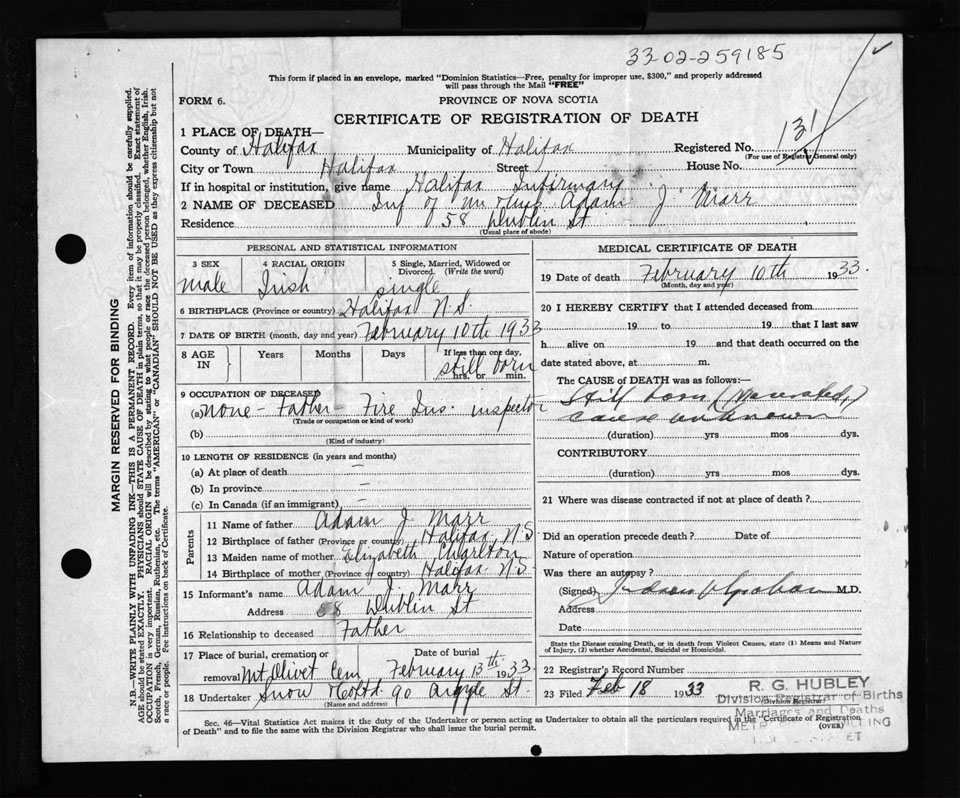 33-02-259185
This form if placed in an envelope, marked "Dominion Statistics—Free, penalty for improper use, $300," and properly addressed
will pass through the Mail "FREE"
FORM 6.
PROVINCE OF NOVA SCOTIA
CERTIFICATE OF REGISTRATION OF DEATH
131
1 PLACE OF DEATH—
County of Halifax Municipality of Halifax Registered No.
(For use of Registrar General only)
City or Town Halifax Street House No.
If in hospital or institution, give name Halifax Infirmary
2 NAME OF DECEASED Inf of Mr & Mrs Adam J. Marr
Residence 58 Dublin St
(Usual place of abode)
PERSONAL AND STATISTICAL INFORMATION
3 SEX 4 RACIAL ORIGIN 5 Single, Married, Widowed or
Divorced. (Write the word)
male Irish single
6 BIRTHPLACE (Province or country) Halifax N.S.
7 DATE OF BIRTH (month, day and year) February 10th 1933
8 AGE IN Years Months Days If less than one day,
still born
hrs. or min.
9 OCCUPATION OF DECEASED
(a) none - Father - Fire Ins. inspector
(Trade or occupation or kind of work)
(b)
(Kind of industry)
10 LENGTH OF RESIDENCE (in years and months)
(a) At place of death —
(b) In province —
(c) In Canada (if an immigrant) —
Parents
11 Name of father Adam J. Marr
12 Birthplace of father (Province or country) Halifax N.S
13 Maiden name of mother Elizabeth Charlton
14 Birthplace of mother (Province or country) Halifax N.S.
15 Informant's name Adam J. Marr
Address 58 Dublin St
16 Relationship to deceased Father
17 Place of burial, cremation or Date of burial
removal Mt Olivet Cem February 13th 1933
18 Undertaker Snow & Co Ltd 90 Argyle St.
(Name and address)
MEDICAL CERTIFICATE OF DEATH
19 Date of death February 10th 1933.
(Month, day and year)
20 I HEREBY CERTIFY that I attended deceased from
19 to 19 that I last saw
h alive on 19 and that death occurred on the
date stated above, at m.
The CAUSE OF DEATH was as follows:—
Still born (Macerated)
cause unknown
(duration) yrs mos dys.
CONTRIBUTORY
(duration) yrs mos dys.
21 Where was disease contracted if not at place of death?
Did an operation precede death? Date of
Nature of operation
Was there an autopsy?
(Signed) Judson V Graham M.D.
Address
Date
State the Disease causing Death, or in death from Violent Causes, state (1) Means and Nature
of Injury, (2) whether Accidental, Suicidal or Homicidal.
22 Registrar's Record Number
23 Filed Feb 18 1933
(Division Registrar)
R. G. HUBLEY
Division Registrar of Births
Marriages and Deaths
Sec. 46—Vital Statistics Act makes it the duty of the Undertaker or person acting as Undertaker to obtain all the particulars required in the "Certificate of Registration
of Death" and to file the same with the Division Registrar who shall issue the burial permit.
(OVER)
MARGIN RESERVED FOR BINDING
N.B.—WRITE PLAINLY WITH UNFADING INK—THIS IS A PERMANENT RECORD. Every item of information should be carefully supplied.
AGE should be stated EXACTLY. PHYSICIANS should STATE CAUSE OF DEATH in plain terms, so that it may be properly classified. Exact statement of
OCCUPATION is very important. RACIAL ORIGIN will be described by stating to what people or race the deceased person belonged, whether English, Irish,
Scotch, French, German, Russian, Ruthenian, etc. The terms "AMERICAN" or "CANADIAN" SHOULD NOT BE USED as they express citizenship but not
a race or people. Fee instructions on back of Certificate.